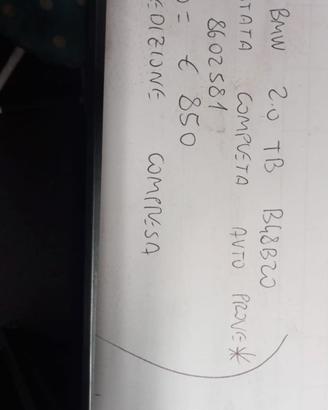 BMW 2.0 TB B48B20
TATA COMPLETA AUTO PROVE*
8602581
= € 850
EDIZIONE COMPRESA